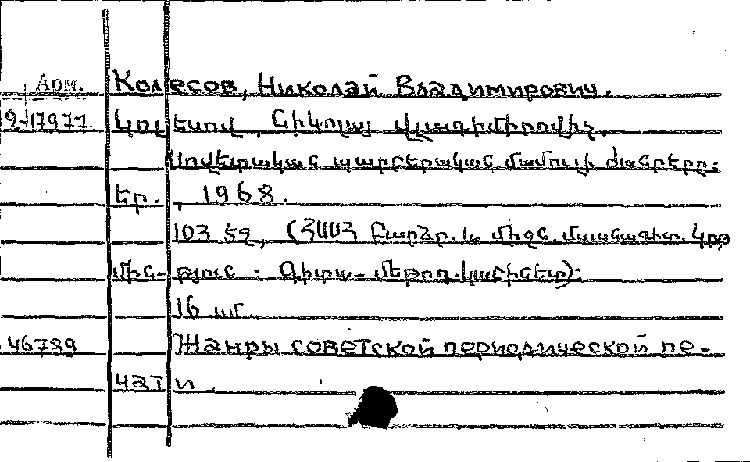 Арм. Колесов, Николай Владимирович.
9-17971 Կոլեսով, Նիկոլայ Վլադիմիրովիչ.
Սովետական պարբերական մամուլի ժանրերը:
Եր., 1968.
103 էջ, (ՀՍՍՀ Բարձր. և միջն. մասնագիտ. կրթ
մին-թյուն. Գիտա-մեթոդ.կաբինետ):
16 սմ.
46739 Жанры советской периодической пе-
чати.